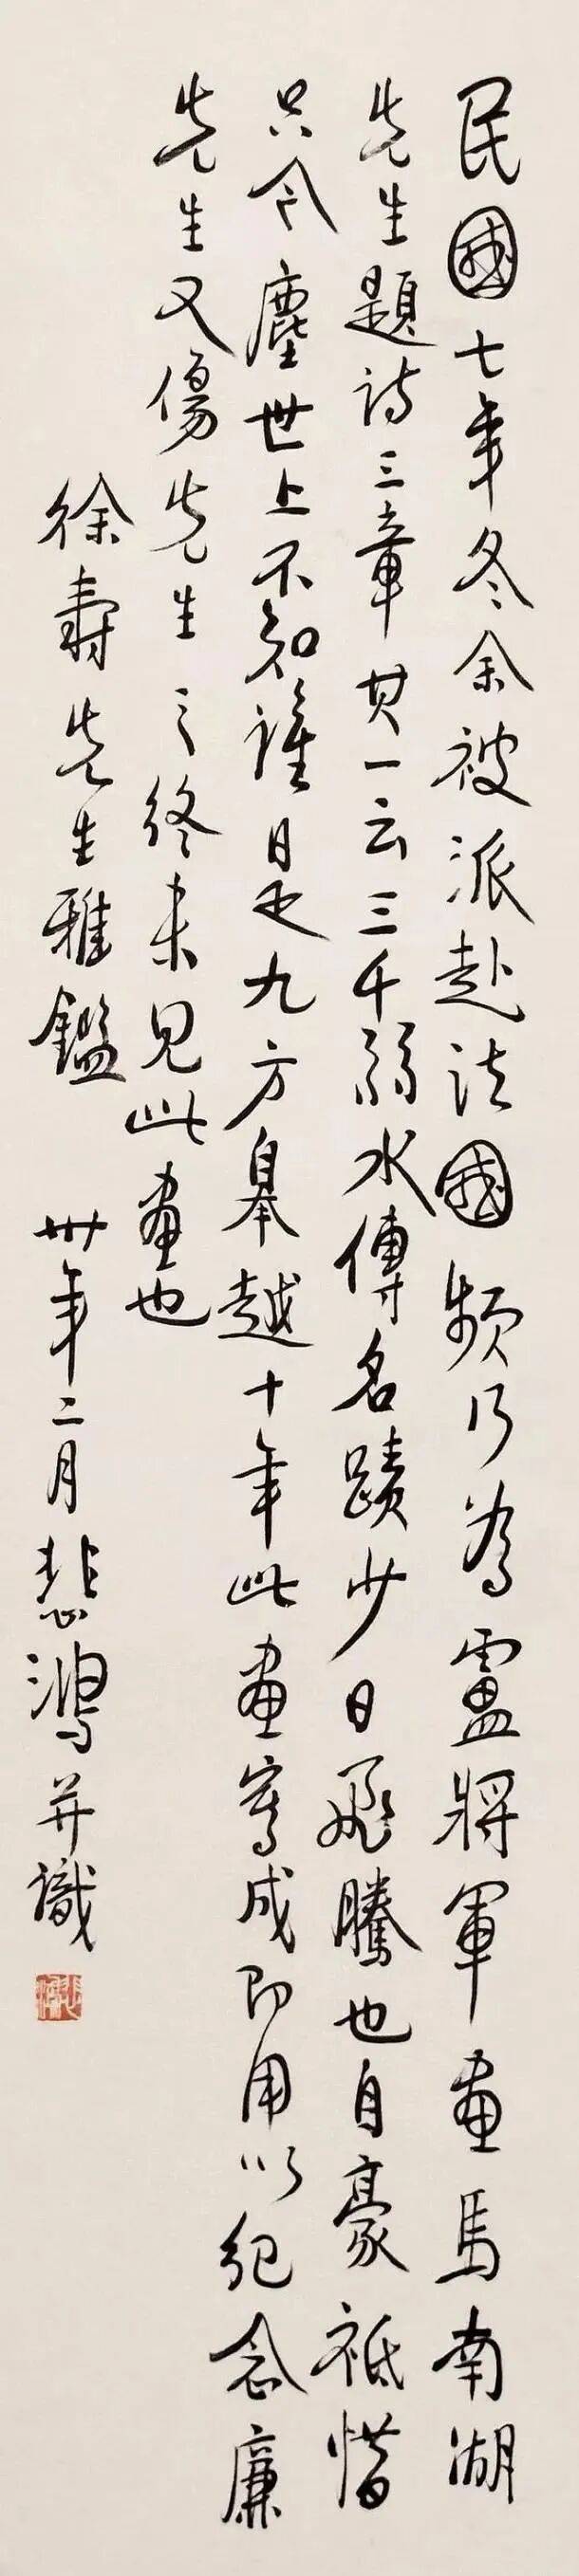 民國七年冬余被派赴法國頻行爲盧將軍畫馬南湖
先生題詩三章其一云三千弱水傳名蹟少日飛騰也自豪祗惜
只今塵世上不知誰是九方皋越十年此畫寫成即用以紀念廉
先生又傷先生之終未見此畫也
徐壽先生雅鑑 卅年二月悲鴻并識
悲鴻